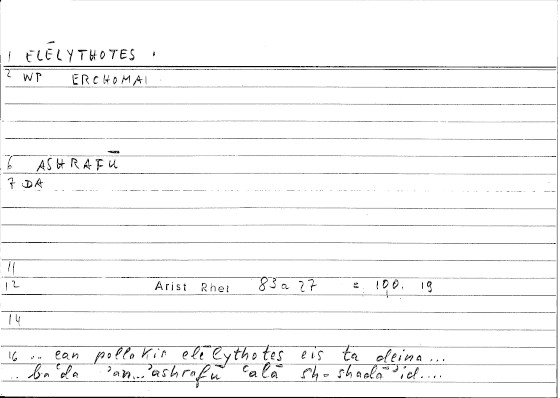 1 ELĒLYTHOTES
2 WP ERCHOMAI
6 ASHRAFŪ
7 DA
11
12 Arist Rhet 83a27 = 100, 19
14
16 .. ean pollakis elēlythotes eis ta deina...
.. ba'da 'an...'ashrafū ʿalā sh-shadā'id....